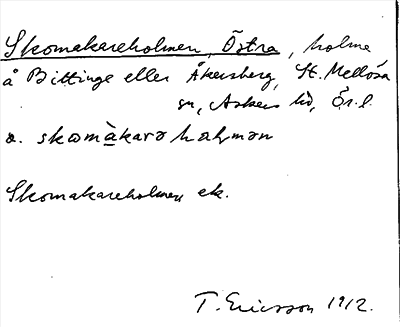 Skomakareholmen, Östra, holme
å Bittinge eller Åkersberg, St. Mellösa
sn, Askers hd, Ör. l.
a. skomàkarə hałmən
Skomakareholmen ek.
T. Ericsson 1912.